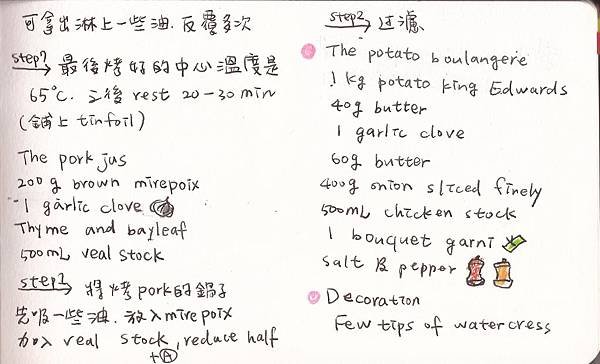 可拿出淋上一些油.反覆多次
step7 最後烤好的中心溫度是
65℃. 之後 rest 20-30 min
(鋪上 tinfoil)
The pork jus
200 g brown mirepoix
1 garlic clove
Thyme and bayleaf
500mL veal stock
step1 將烤pork的鍋子
先吸一些油.放入mirepoix
加入 veal stock, reduce half
+A
step2 过滤
The potato boulangere
1 kg potato king Edwards
40g butter
1 garlic clove
60g butter
400g onion sliced finely
500mL chicken stock
1 bouquet garni
salt & pepper
Decoration
Few tips of watercress